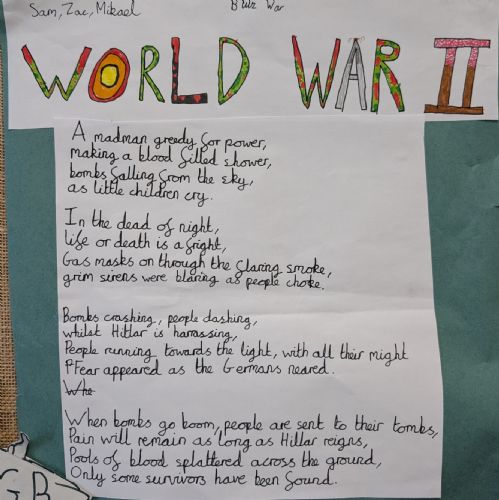 Sam, Zac, Mikael
War
WORLD WAR II
A madman greedy for power,
making a blood filled shower,
bombs falling from the sky,
as little children cry.
In the dead of night,
life or death is a fright,
Gas masks on through the flaring smoke,
grim sirens were blaring as people choke.
Bombs crashing, people dashing,
whilst Hitlar is harrassing,
People running towards the light, with all their might
Fear appeared as the Germans neared.
Whe
When bombs go boom, people are sent to their tombs,
Pain will remain as long as Hitlar reigns,
Pools of blood splattered across the ground,
Only some survivors have been found.
GB